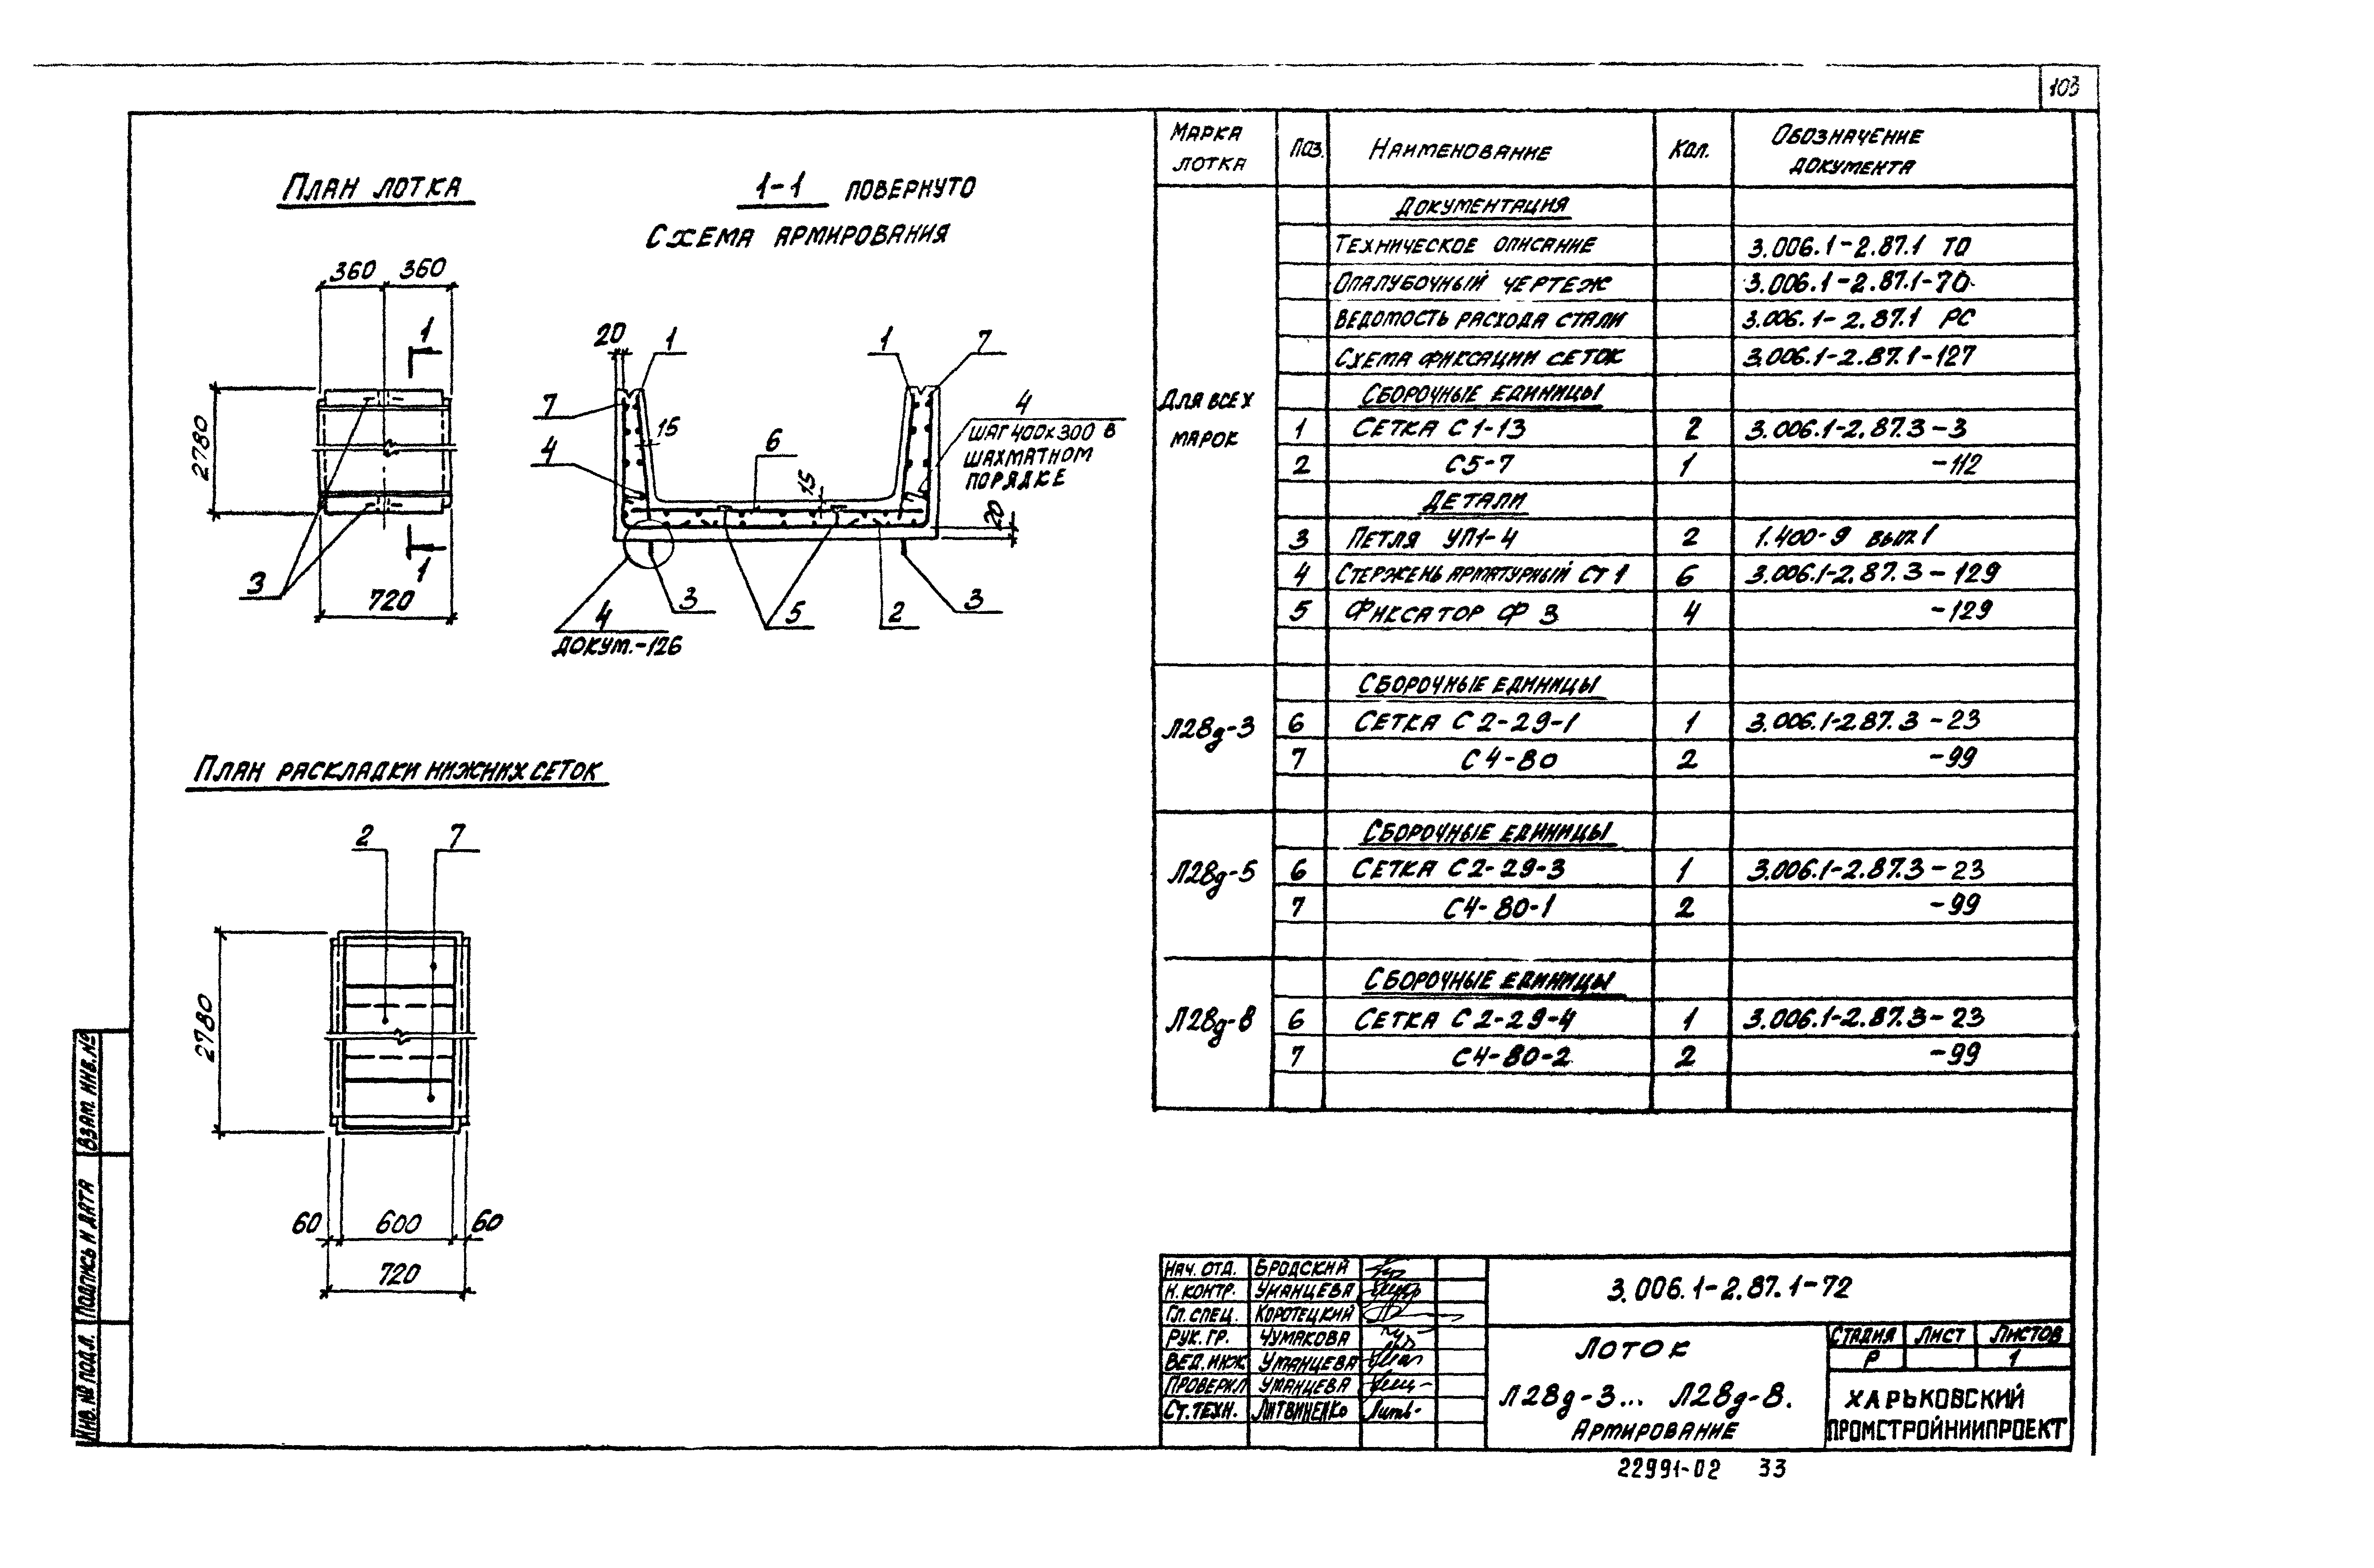 103
План лотка
1-1 повернуто
Схема армирования
360 360
1
2780
1
3
720
20
1
1
7
7
15
4
6
15
4
шаг 400х300 в
шахматном
порядке
20
4
докум.-126
3
5
2
3
План раскладки нижних сеток
2 7
2780
60 600 60
720
Марка лотка Поз. Наименование Кол. Обозначение документа
Документация
Техническое описание 3.006.1-2.87.1 ТО
Опалубочный чертеж 3.006.1-2.87.1-70
Ведомость расхода стали 3.006.1-2.87.1 РС
Схема фиксации сеток 3.006.1-2.87.1-127
Для всех марок
Сборочные единицы
1 Сетка С1-13 2 3.006.1-2.87.3-3
2 С5-7 1 -112
Детали
3 Петля УП1-4 2 1.400-9 вып.1
4 Стержень арматурный СТ1 6 3.006.1-2.87.3-129
5 Фиксатор Ф3 4 -129
Л28д-3
Сборочные единицы
6 Сетка С2-29-1 1 3.006.1-2.87.3-23
7 С4-80 2 -99
Л28д-5
Сборочные единицы
6 Сетка С2-29-3 1 3.006.1-2.87.3-23
7 С4-80-1 2 -99
Л28д-8
Сборочные единицы
6 Сетка С2-29-4 1 3.006.1-2.87.3-23
7 С4-80-2 2 -99
Взам. инв. №
Подпись и дата
Инв. № подл.
Нач. отд. Бродский
Н. контр. Уманцева
Гл. спец. Коротецкий
Рук. гр. Чумакова
Вед. инж Уманцева
Проверил Уманцева
Ст. техн. Литвиненко
3.006.1-2.87.1-72
Лоток
Л28д-3... Л28д-8.
Армирование
Стадия Лист Листов
Р 1
Харьковский
Промстройниипроект
22991-02 33